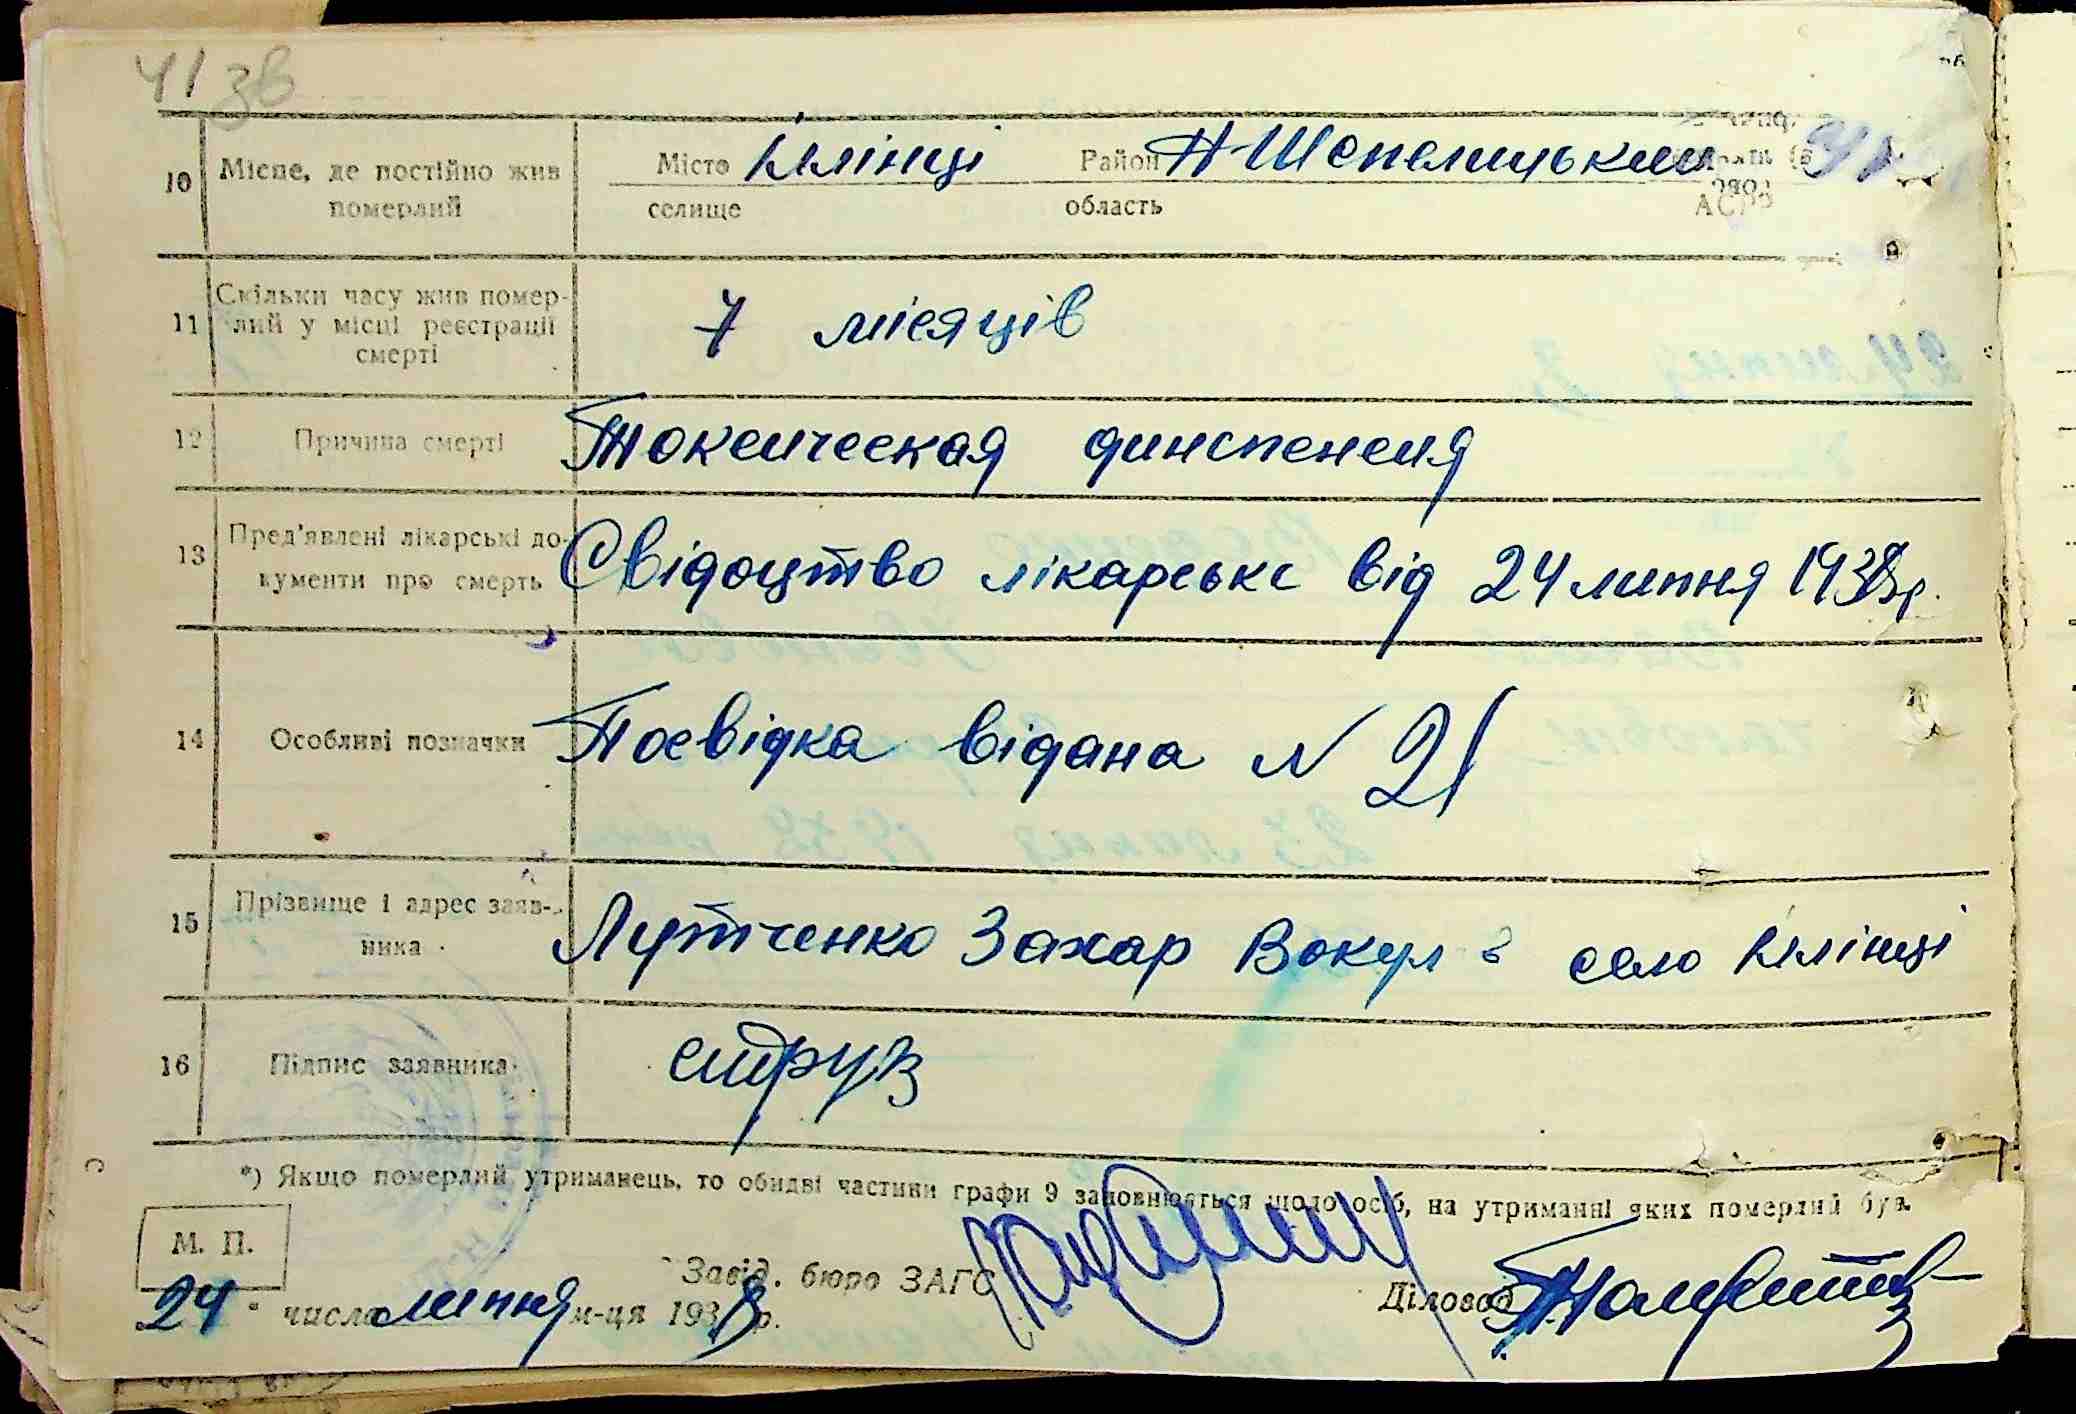 41 зв
10 Місце, де постійно жив Місто Іллінці Район Н-Шепелицький
померлий селище область АСРР
Скільки часу жив помер-
11 лий у місці реєстрації 7 місяців
смерті
12 Причина смерті Токсическая диспенсия
Пред'явлені лікарські до-
13 кументи про смерть Свідоцтво лікарське від 24 липня 1938 р.
14 Особливі позначки Посвідка відана № 21
15 Прізвище і адрес заяв- Лутченко Захар Вокул в село Іллінці
ника
16 Підпис заявника
*) Якщо померлий утриманець, то обидві частини графи 9 заповнюється щодо осіб, на утриманні яких померлий був.
М. П.
Завід. бюро ЗАГС Діловод
24 числа липня м-ця 1938 р.